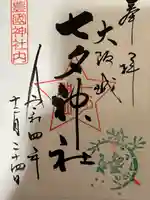 奉拝
大阪城
七夕神社
豊國神社内
令和四年
十一月二十四日